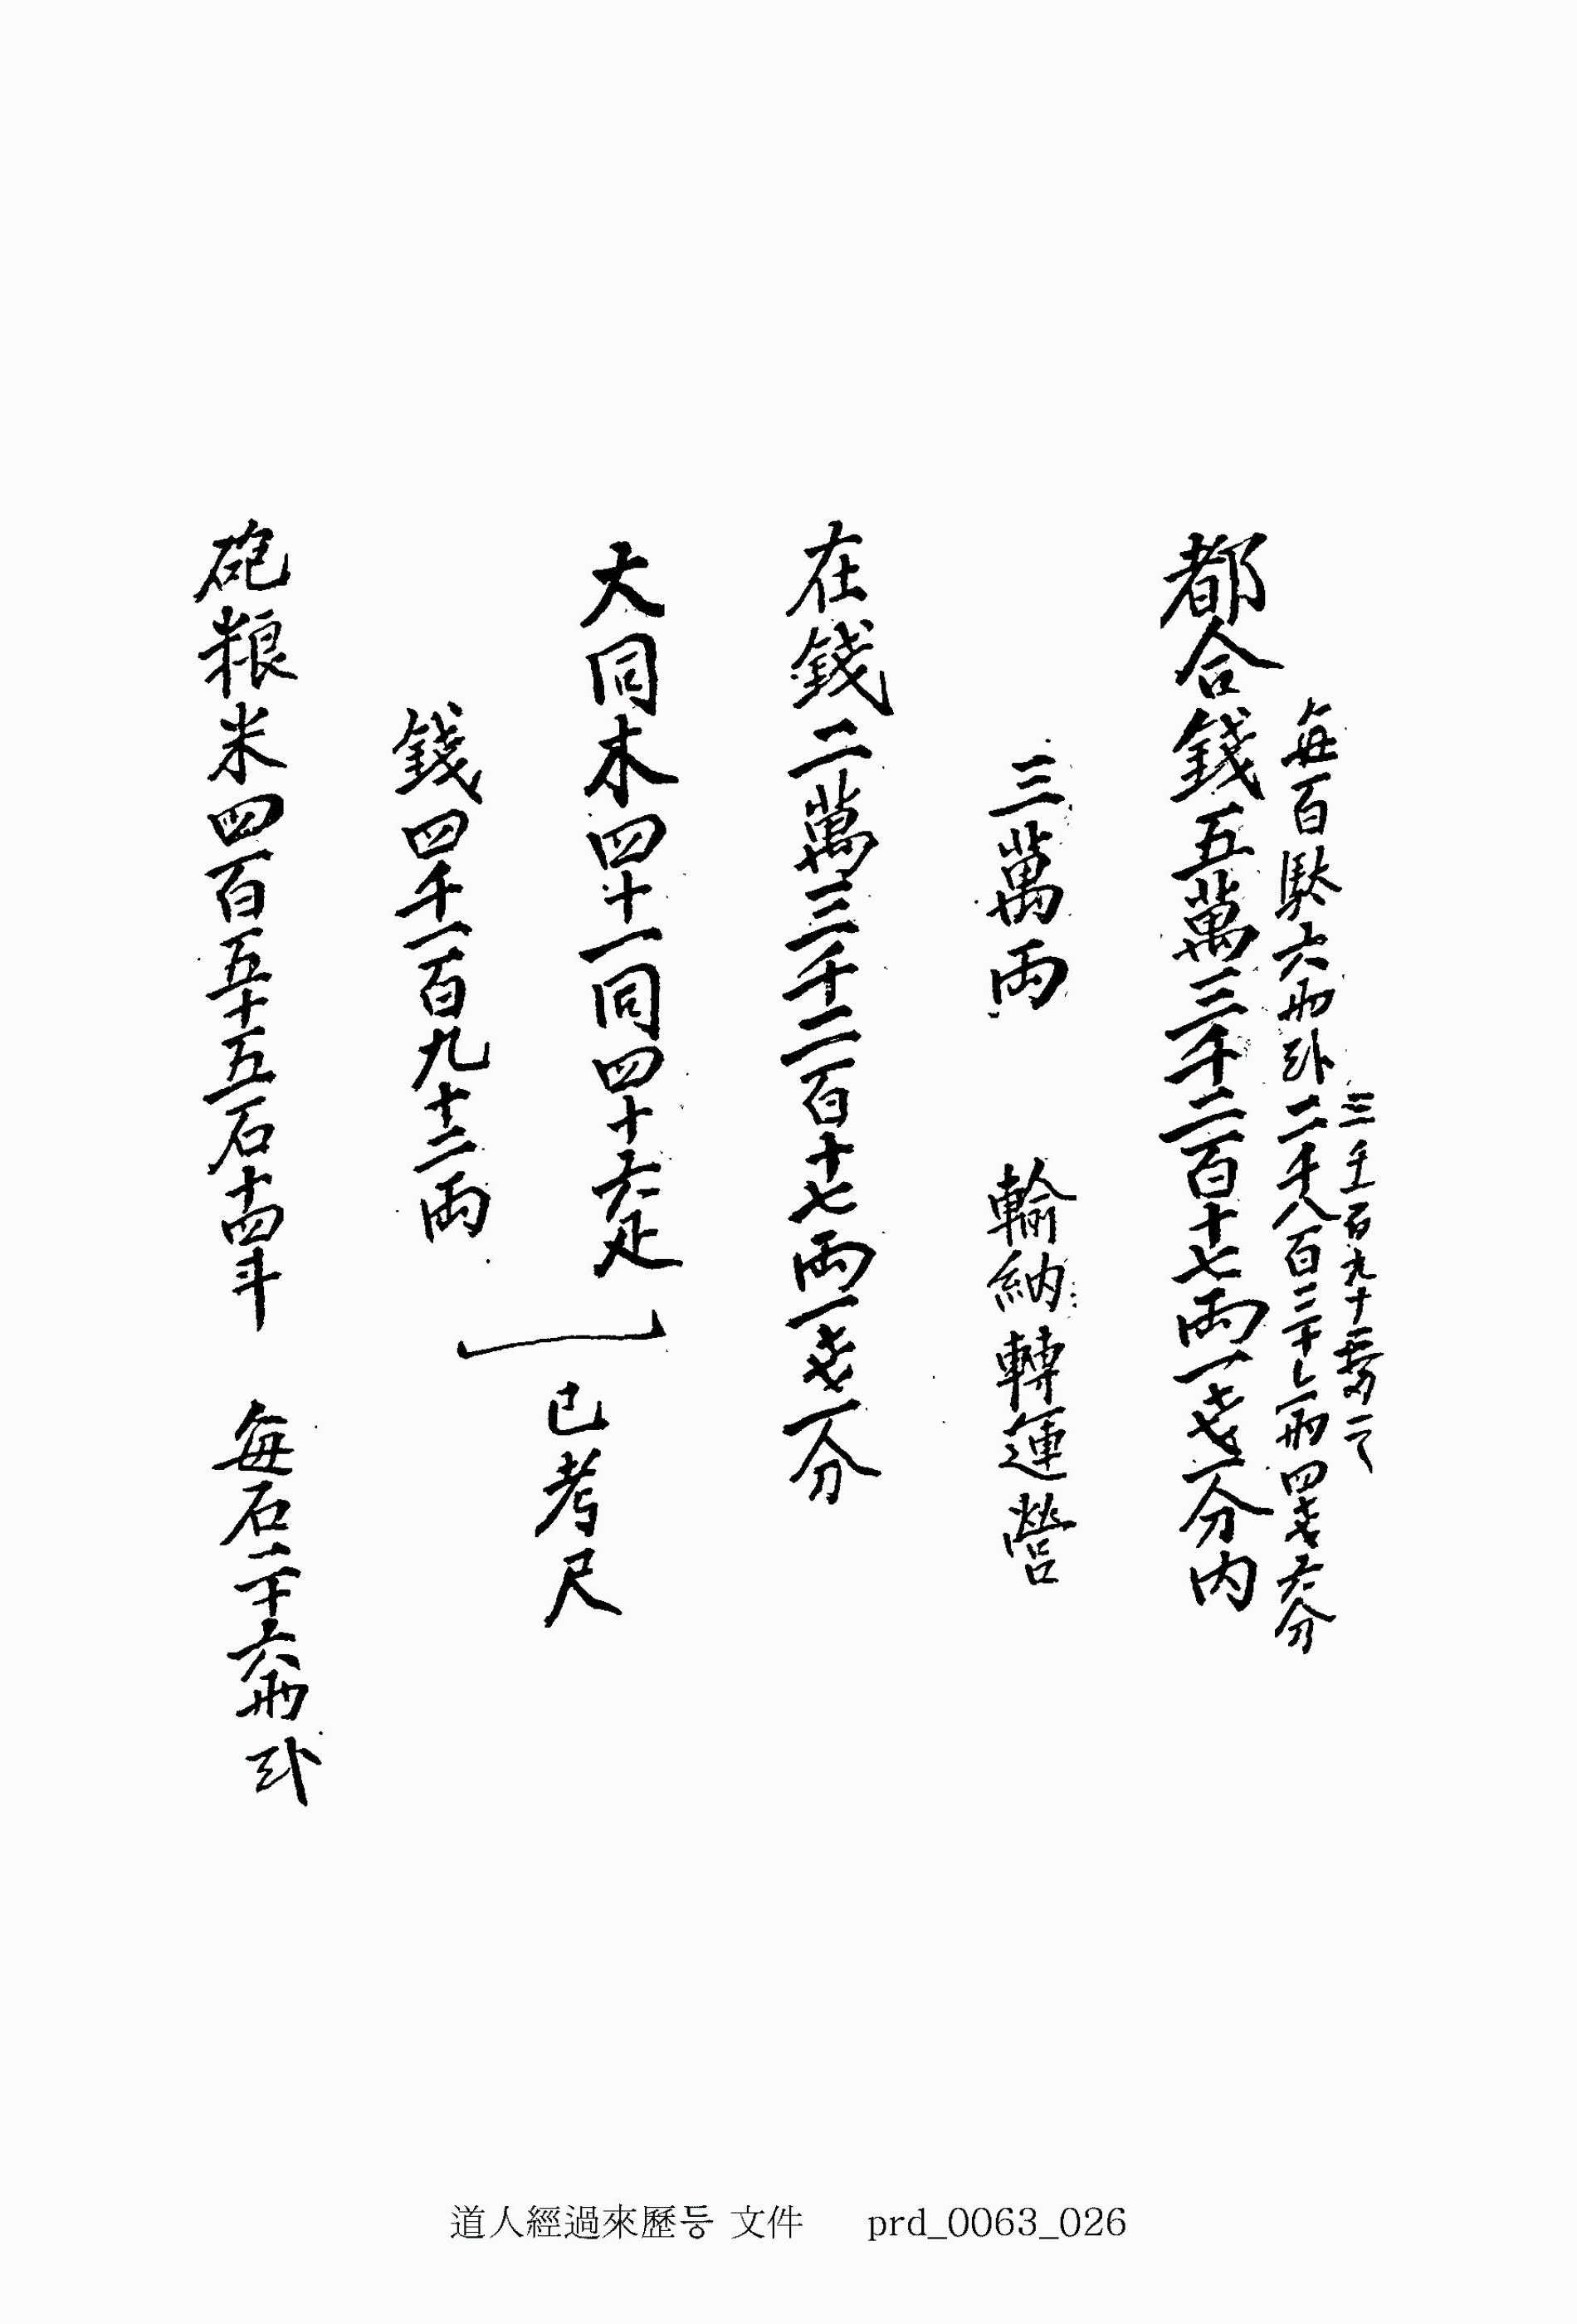 三千二百九十
每百駄六兩式二千八百三十七兩四戔六分
都合錢五萬三千二百十七兩一戔一分內
三萬兩 輸納轉運營
在錢二萬三千二百十七兩一戔一分
大同木四十一同四十六疋
已考尺
錢四千一百九十二兩
砲粮米四百五十五石十四斗 每石二十六兩式
道人經過來歷등 文件 prd_0063_026